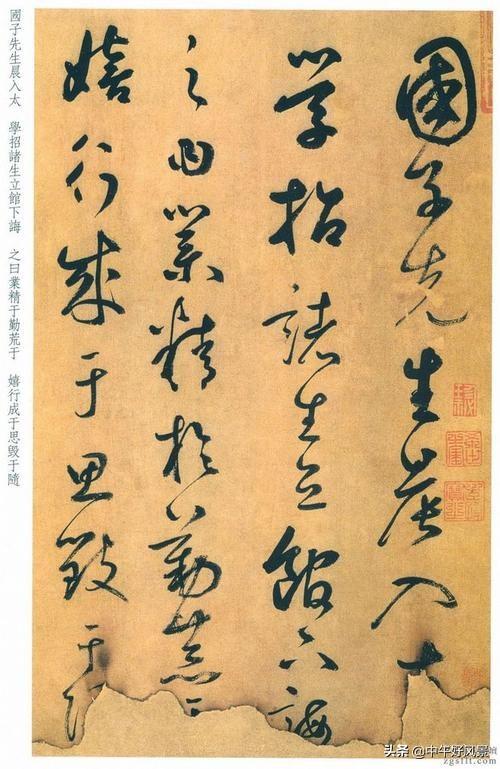 國子先生晨入太
學招諸生立館下誨
之曰業精於勤荒于
嬉行成于思毀于
國子先生晨入太 學招諸生立館下誨 之曰業精于勤荒于 嬉行成于思毀于隨
头条 @中午好风景
zgsflt.com